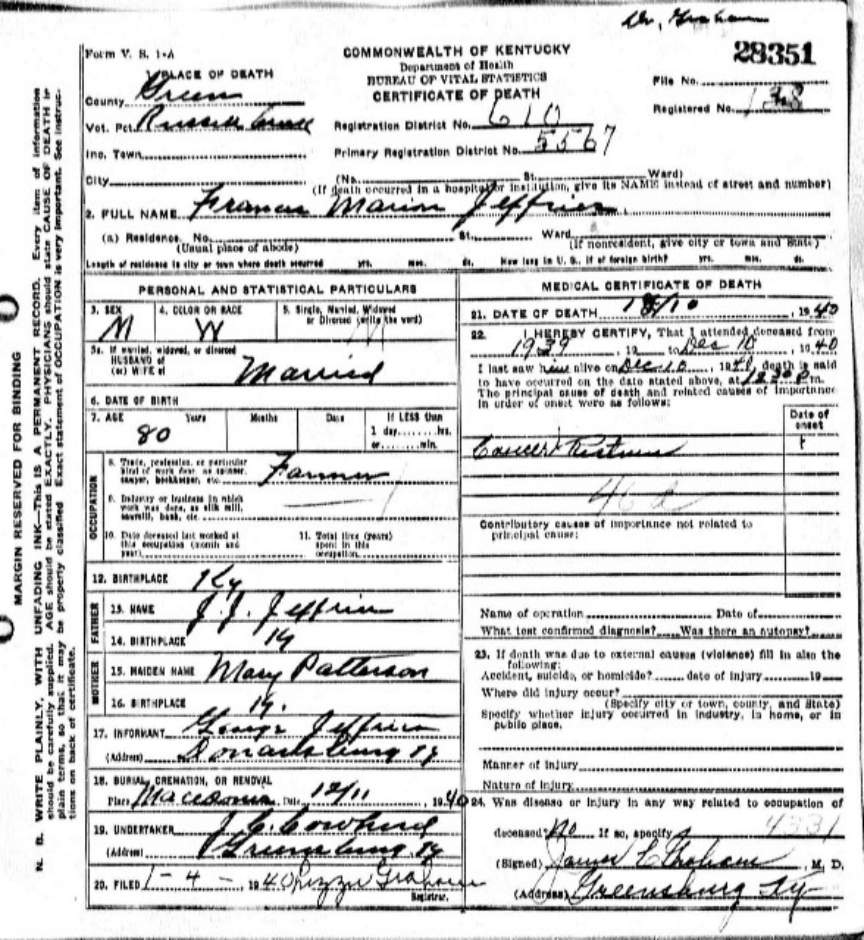 Dr. Graham
28351
Form V. S. 1-A
COMMONWEALTH OF KENTUCKY
Department of Health
BUREAU OF VITAL STATISTICS
CERTIFICATE OF DEATH
File No.
Registered No. 138
1. PLACE OF DEATH
County Green
Vot. Pct. Russell
Inc. Town
City
Registration District No. 610
Primary Registration District No. 5567
(No. St. Ward)
(If death occurred in a hospital or institution, give its NAME instead of street and number)
2. FULL NAME Francis Marion Jeffries
(a) Residence. No. St. Ward
(Usual place of abode) (If nonresident, give city or town and State)
Length of residence in city or town where death occurred yrs. mos. ds. How long in U. S., if of foreign birth? yrs. mos. ds.
PERSONAL AND STATISTICAL PARTICULARS
3. SEX M
4. COLOR OR RACE W
5. Single, Married, Widowed or Divorced (write the word) M
5a. If married, widowed, or divorced
HUSBAND of
(or) WIFE of Married
6. DATE OF BIRTH
7. AGE 80 Years Months Days If LESS than
1 day hrs.
or min.
OCCUPATION
8. Trade, profession, or particular
kind of work done, as spinner,
sawyer, bookkeeper, etc. Farmer
9. Industry or business in which
work was done, as silk mill,
sawmill, bank, etc.
10. Date deceased last worked at
this occupation (month and
year)
11. Total time (years)
spent in this
occupation
12. BIRTHPLACE Ky
FATHER
13. NAME J. J. Jeffries
14. BIRTHPLACE Ky
MOTHER
15. MAIDEN NAME Mary Patterson
16. BIRTHPLACE Ky.
17. INFORMANT George Jeffries
(Address) Donansburg Ky
18. BURIAL, CREMATION, OR REMOVAL
Place Macedonia Date 12/11, 1940
19. UNDERTAKER J. C. Cowherd
(Address) Greensburg Ky
20. FILED 1-4-1940 Lizzie Graham
Registrar.
MEDICAL CERTIFICATE OF DEATH
21. DATE OF DEATH 12/10, 1940
22. I HEREBY CERTIFY, That I attended deceased from
1939, 19 to Dec 10, 1940
I last saw him alive on Dec 10, 1940, death is said
to have occurred on the date stated above, at 12:30 P.m.
The principal cause of death and related causes of importance
in order of onset were as follows:
Date of
onset
Cancer Rectum
46
Contributory causes of importance not related to
principal cause:
Name of operation Date of
What test confirmed diagnosis? Was there an autopsy?
23. If death was due to external causes (violence) fill in also the
following:
Accident, suicide, or homicide? date of injury 19
Where did injury occur?
(Specify city or town, county, and State)
Specify whether injury occurred in industry, in home, or in
public place.
Manner of injury
Nature of injury
24. Was disease or injury in any way related to occupation of
deceased? No If so, specify 4331
(Signed) James C Graham, M. D.
(Address) Greensburg Ky
MARGIN RESERVED FOR BINDING
N. B. WRITE PLAINLY, WITH UNFADING INK—This is A PERMANENT RECORD. Every item of information
should be carefully supplied. AGE should be stated EXACTLY. PHYSICIANS should state CAUSE OF DEATH in
plain terms, so that it may be properly classified. Exact statement of OCCUPATION is very important. See instruc-
tions on back of certificate.